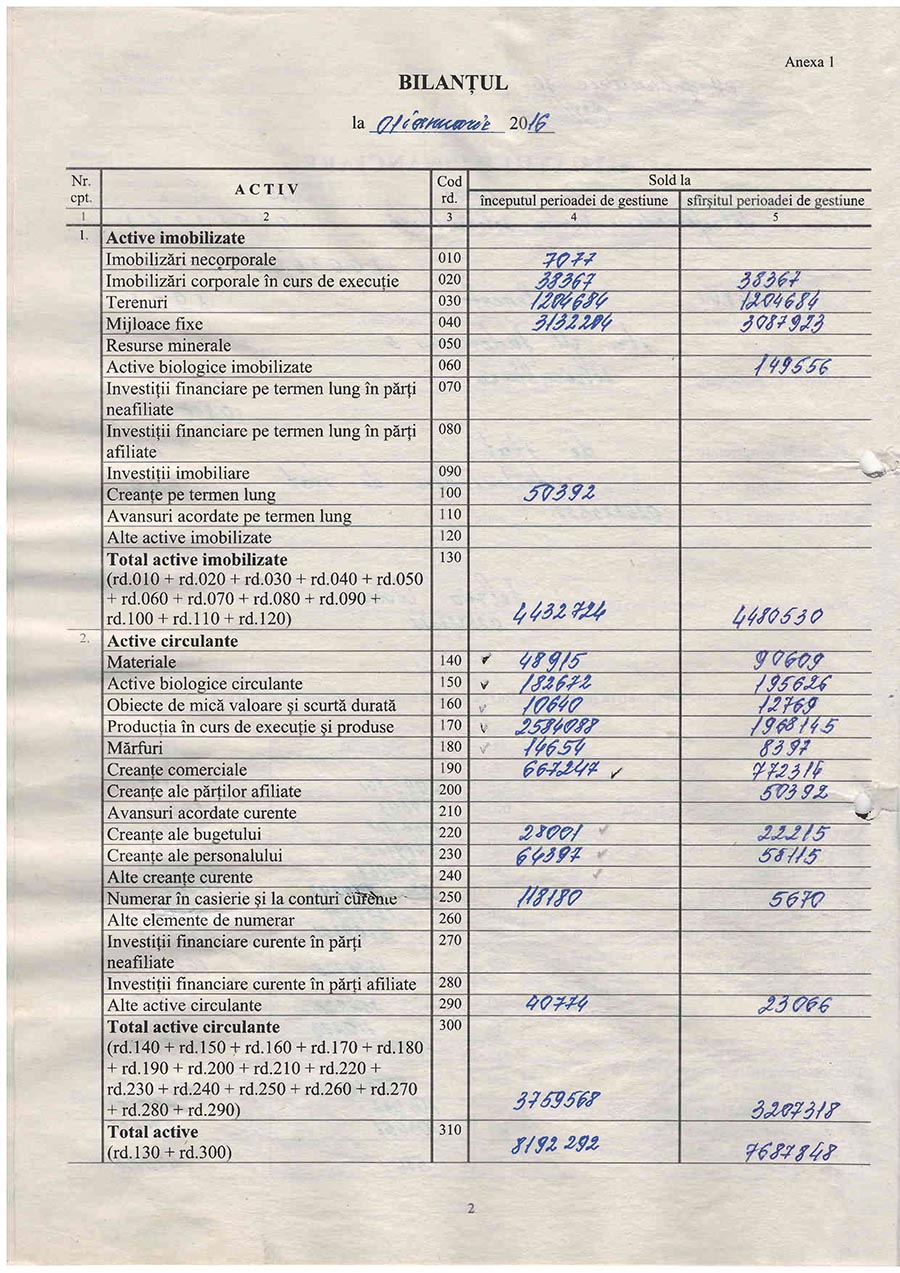 Anexa 1
BILANȚUL
la 01 ianuarie 2016
Nr. cpt. A C T I V Cod rd. Sold la
începutul perioadei de gestiune sfîrșitul perioadei de gestiune
1 2 3 4 5
1. Active imobilizate
Imobilizări necorporale 010 7077
Imobilizări corporale în curs de execuție 020 38367 38367
Terenuri 030 1204684 1204684
Mijloace fixe 040 3132204 3087923
Resurse minerale 050
Active biologice imobilizate 060 149556
Investiții financiare pe termen lung în părți 070
neafiliate
Investiții financiare pe termen lung în părți 080
afiliate
Investiții imobiliare 090
Creanțe pe termen lung 100 50392
Avansuri acordate pe termen lung 110
Alte active imobilizate 120
Total active imobilizate 130
(rd.010 + rd.020 + rd.030 + rd.040 + rd.050
+ rd.060 + rd.070 + rd.080 + rd.090 +
rd.100 + rd.110 + rd.120) 4432724 4480530
2. Active circulante
Materiale 140 ✓ 48915 90609
Active biologice circulante 150 ✓ 182672 195626
Obiecte de mică valoare și scurtă durată 160 ✓ 10640 12769
Producția în curs de execuție și produse 170 ✓ 2584088 1968145
Mărfuri 180 ✓ 14654 8397
Creanțe comerciale 190 667247 ✓ 772314
Creanțe ale părților afiliate 200 50392
Avansuri acordate curente 210
Creanțe ale bugetului 220 28001 ✓ 22215
Creanțe ale personalului 230 64397 ✓ 58115
Alte creanțe curente 240 ✓
Numerar în casierie și la conturi curente 250 118180 5670
Alte elemente de numerar 260
Investiții financiare curente în părți 270
neafiliate
Investiții financiare curente în părți afiliate 280
Alte active circulante 290 40774 23066
Total active circulante 300
(rd.140 + rd.150 + rd.160 + rd.170 + rd.180
+ rd.190 + rd.200 + rd.210 + rd.220 +
rd.230 + rd.240 + rd.250 + rd.260 + rd.270
+ rd.280 + rd.290) 3759568 3207318
Total active 310
(rd.130 + rd.300) 8192 292 7687848
2